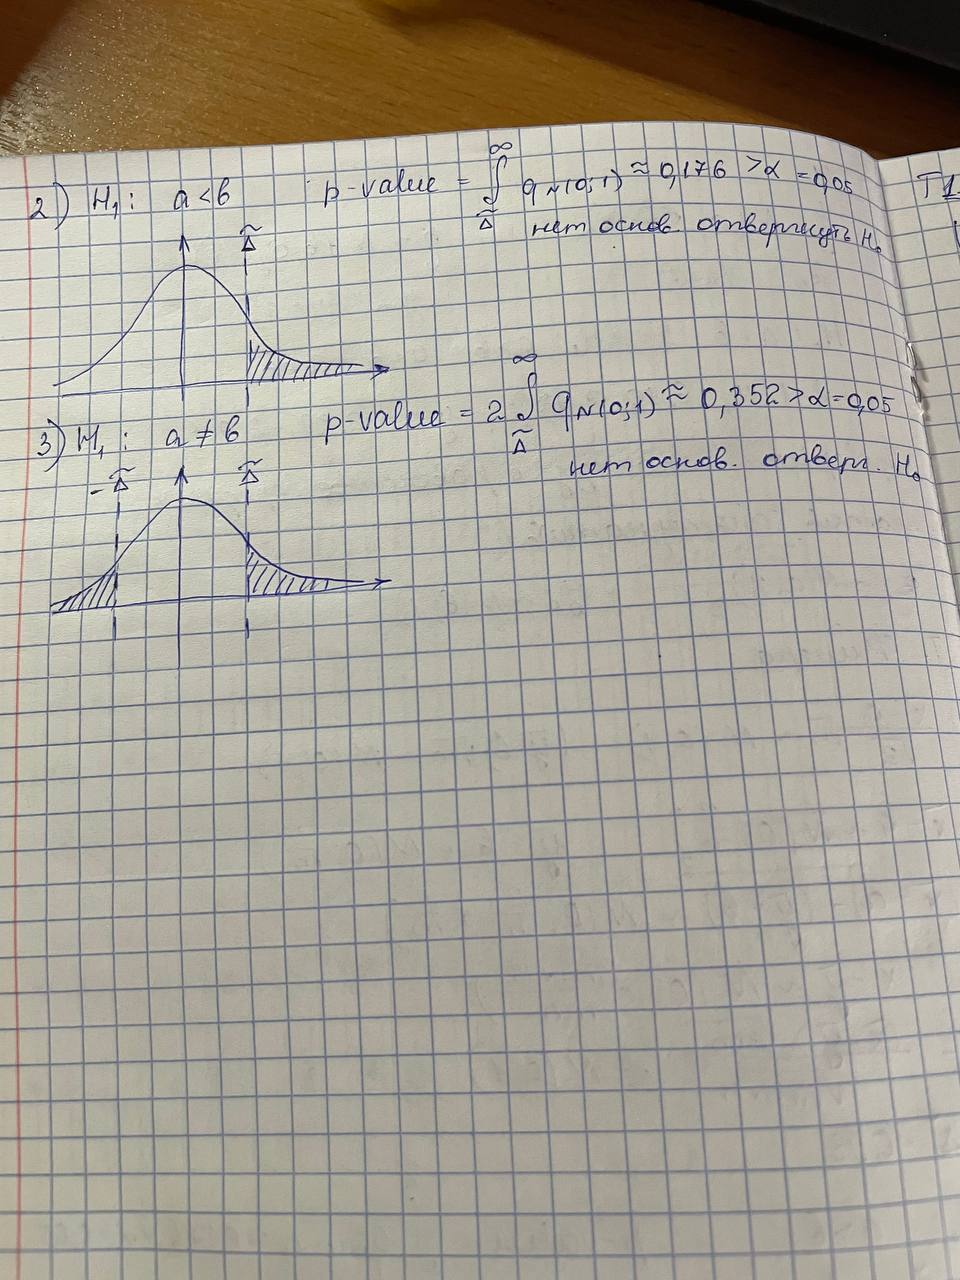 2) H₁: a < b p-value = ∫ q N(0;1) ≈ 0,176 > α = 0,05
∞
Δ̃
нет основ. отвергнуть H₀
Δ̃
3) H₁: a ≠ b p-value = 2 ∫ q N(0;1) ≈ 0,352 > α = 0,05
∞
Δ̃
нет основ. отверг. H₀
-Δ̃ Δ̃
T1.